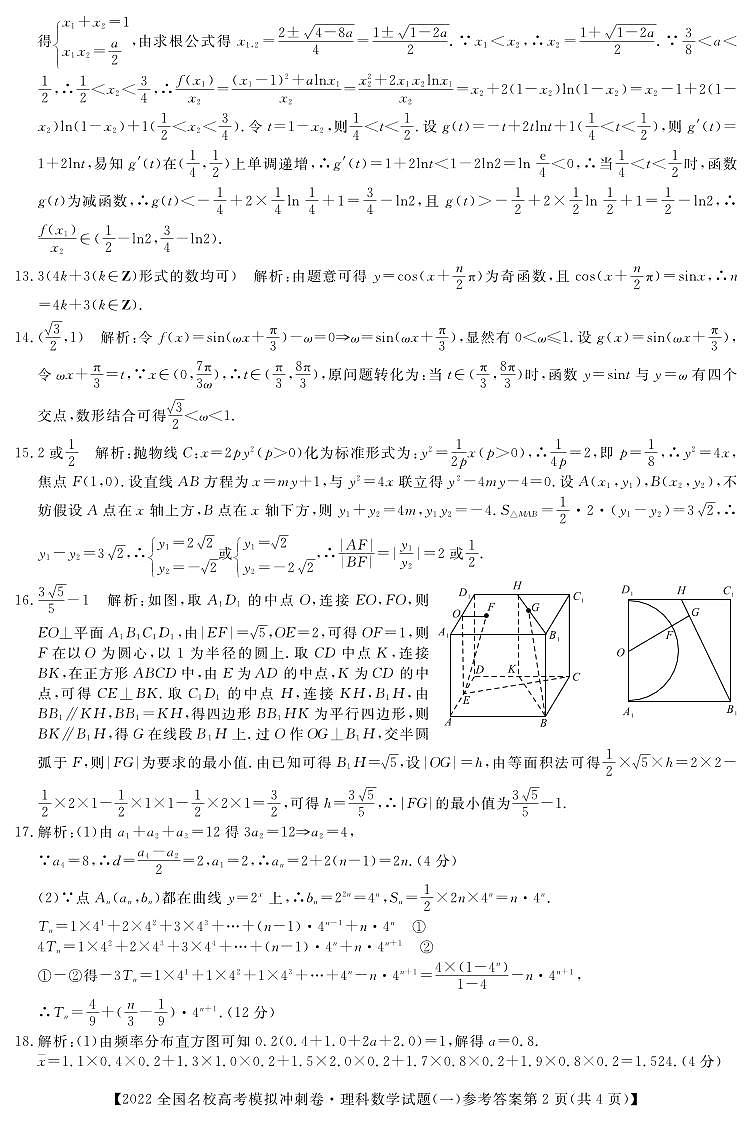 得{x₁+x₂=1, x₁x₂=a/2 ,由求根公式得 x₁.₂=(2±√(4-8a))/4=(1±√(1-2a))/2. ∵x₁<x₂,∴x₂=(1+√(1-2a))/2. ∵3/8<a<
1/2,∴1/2<x₂<3/4,∴f(x₁)/x₂=((x₁-1)²+alnx₁)/x₂=(x₂²+2x₁x₂lnx₁)/x₂=x₂+2(1-x₂)ln(1-x₂)=x₂-1+2(1-
x₂)ln(1-x₂)+1(1/2<x₂<3/4). 令 t=1-x₂,则1/4<t<1/2. 设 g(t)=-t+2tlnt+1(1/4<t<1/2),则 g′(t)=
1+2lnt,易知 g′(t)在(1/4,1/2)上单调递增,∴g′(t)=1+2lnt<1-2ln2=ln e/4<0,∴当1/4<t<1/2时,函数
g(t)为减函数,∴g(t)<-1/4+2×1/4ln 1/4+1=3/4-ln2,且 g(t)>-1/2+2×1/2ln 1/2+1=1/2-ln2,∴
f(x₁)/x₂∈(1/2-ln2,3/4-ln2).
13. 3(4k+3(k∈Z)形式的数均可) 解析:由题意可得 y=cos(x+n/2π)为奇函数,且 cos(x+n/2π)=sinx,∴n
=4k+3(k∈Z).
14. (√3/2,1) 解析:令 f(x)=sin(ωx+π/3)-ω=0⇒ω=sin(ωx+π/3),显然有 0<ω≤1. 设 g(x)=sin(ωx+π/3),
令 ωx+π/3=t,∵x∈(0,7π/3ω),∴t∈(π/3,8π/3),原问题转化为:当 t∈(π/3,8π/3)时,函数 y=sint 与 y=ω 有四个
交点,数形结合可得√3/2<ω<1.
15. 2 或1/2 解析:抛物线 C:x=2py²(p>0)化为标准形式为:y²=1/2p x(p>0),∴1/4p=2,即 p=1/8,∴y²=4x,
焦点 F(1,0). 设直线 AB 方程为 x=my+1,与 y²=4x 联立得 y²-4my-4=0. 设 A(x₁,y₁),B(x₂,y₂),不
妨假设 A 点在 x 轴上方,B 点在 x 轴下方,则 y₁+y₂=4m,y₁y₂=-4. S△MAB=1/2·2·(y₁-y₂)=3√2,∴
y₁-y₂=3√2,∴{y₁=2√2, y₂=-√2 或{y₁=√2, y₂=-2√2 ,∴|AF|/|BF|=|y₁/y₂|=2 或1/2.
16. 3√5/5-1 解析:如图,取 A₁D₁ 的中点 O,连接 EO,FO,则
EO⊥平面 A₁B₁C₁D₁,由|EF|=√5,OE=2,可得 OF=1,则
F 在以 O 为圆心,以 1 为半径的圆上. 取 CD 中点 K,连接
BK,在正方形 ABCD 中,由 E 为 AD 的中点,K 为 CD 的中
点,可得 CE⊥BK. 取 C₁D₁ 的中点 H,连接 KH,B₁H,由
BB₁∥KH,BB₁=KH,得四边形 BB₁HK 为平行四边形,则
BK∥B₁H,得 G 在线段 B₁H 上. 过 O 作 OG⊥B₁H,交半圆
D₁ H C₁ O F G A₁ B₁ D K C E A B
D₁ H C₁ G F O A₁ B₁
弧于 F,则|FG|为要求的最小值. 由已知可得 B₁H=√5,设|OG|=h,由等面积法可得1/2×√5×h=2×2-
1/2×2×1-1/2×1×1-1/2×2×1=3/2,可得 h=3√5/5,∴|FG|的最小值为3√5/5-1.
17. 解析:(1)由 a₁+a₂+a₃=12 得 3a₂=12⇒a₂=4,
∵a₄=8,∴d=(a₄-a₂)/2=2,a₁=2,∴aₙ=2+2(n-1)=2n. (4 分)
(2)∵点 Aₙ(aₙ,bₙ)都在曲线 y=2ˣ 上,∴bₙ=2²ⁿ=4ⁿ,Sₙ=1/2×2n×4ⁿ=n·4ⁿ.
Tₙ=1×4¹+2×4²+3×4³+…+(n-1)·4ⁿ⁻¹+n·4ⁿ ①
4Tₙ=1×4²+2×4³+3×4⁴+…+(n-1)·4ⁿ+n·4ⁿ⁺¹ ②
①-②得-3Tₙ=1×4¹+1×4²+1×4³+…+4ⁿ-n·4ⁿ⁺¹=4×(1-4ⁿ)/(1-4)-n·4ⁿ⁺¹,
∴Tₙ=4/9+(n/3-1/9)·4ⁿ⁺¹. (12 分)
18. 解析:(1)由频率分布直方图可知 0.2(0.4+1.0+2a+2.0)=1,解得 a=0.8.
x̄=1.1×0.4×0.2+1.3×1.0×0.2+1.5×2.0×0.2+1.7×0.8×0.2+1.9×0.8×0.2=1.524. (4 分)
【2022 全国名校高考模拟冲刺卷·理科数学试题(一)参考答案第 2 页(共 4 页)】